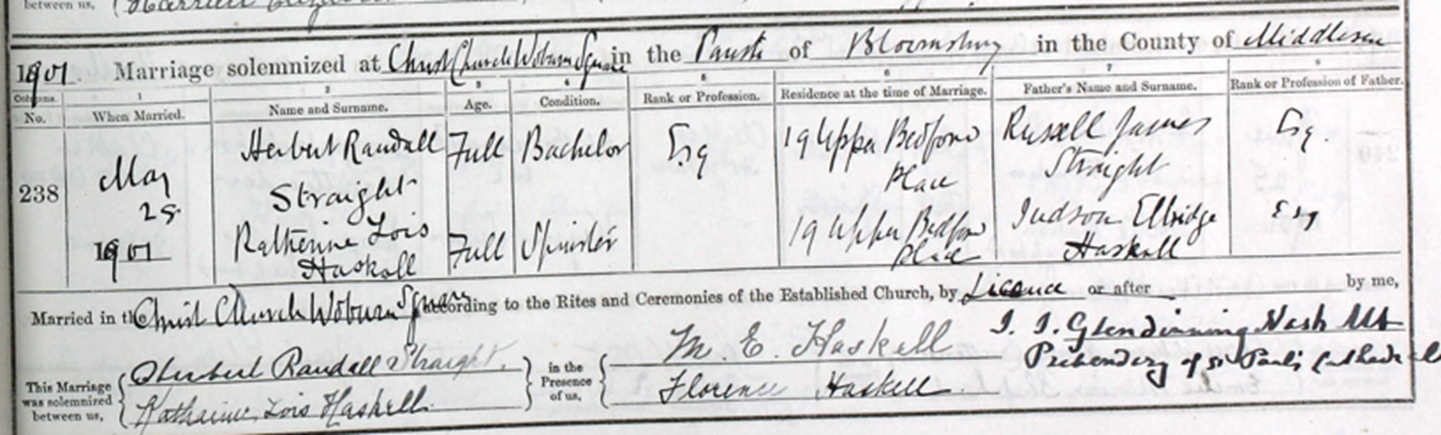 between us,
1901. Marriage solemnized at Christ Church Woburn Square in the Parish of Bloomsbury in the County of Middlesex
Columns. 1 2 3 4 5 6 7 8
No. When Married. Name and Surname. Age. Condition. Rank or Profession. Residence at the time of Marriage. Father's Name and Surname. Rank or Profession of Father.
238 May 25 1901
Herbert Randall Straight Full Bachelor Esq 19 Upper Bedford Place Russell James Straight Esq.
Katherine Lois Haskell Full Spinster 19 Upper Bedford Place Judson Elbridge Haskell Esq
Married in the Christ Church Woburn Square according to the Rites and Ceremonies of the Established Church, by Licence or after by me,
This Marriage was solemnized between us, { Herbert Randall Straight. } in the Presence of us, { M. E. Haskell J. J. Glendinning Nash MA
Katharine Lois Haskell. Florence Haskell Prebendary of St Paul's Cathedral